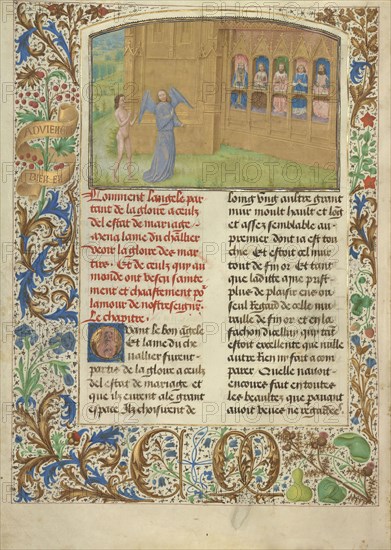 Comment langele par
tant de la gloire a ceulz
del estat de mariage
mena lame du chlr
veoir la gloire des mar
tirs. Et de ceulz qui au
monde ont vescu sainte
ment et chaastement por
lamour de nostreseigneur
Le chapitre.
Quant le bon angele
Et lame du che
uallier furent
partis de la gloire a ceulz
del estat de mariage et
que ilz eurent ale grant
espace Ilz choisirent de
loing vng aultre grant
mur moult hault et lõg
et assez semblable au
premier dont ia est tou
chie Et estoit cel mur
tout de fin or Et tant
que laditte ame prist
plus de plaisir en vn
seul regard de celle mu
raille de fin or et en la
fachon dicelluy qui tant
estoit excellente que nulle
autre Rien ny fait a com
parer Quelle nauoit
encoures fait en toutes
les beaultez que pauant
auoit veues ne regardees
C M